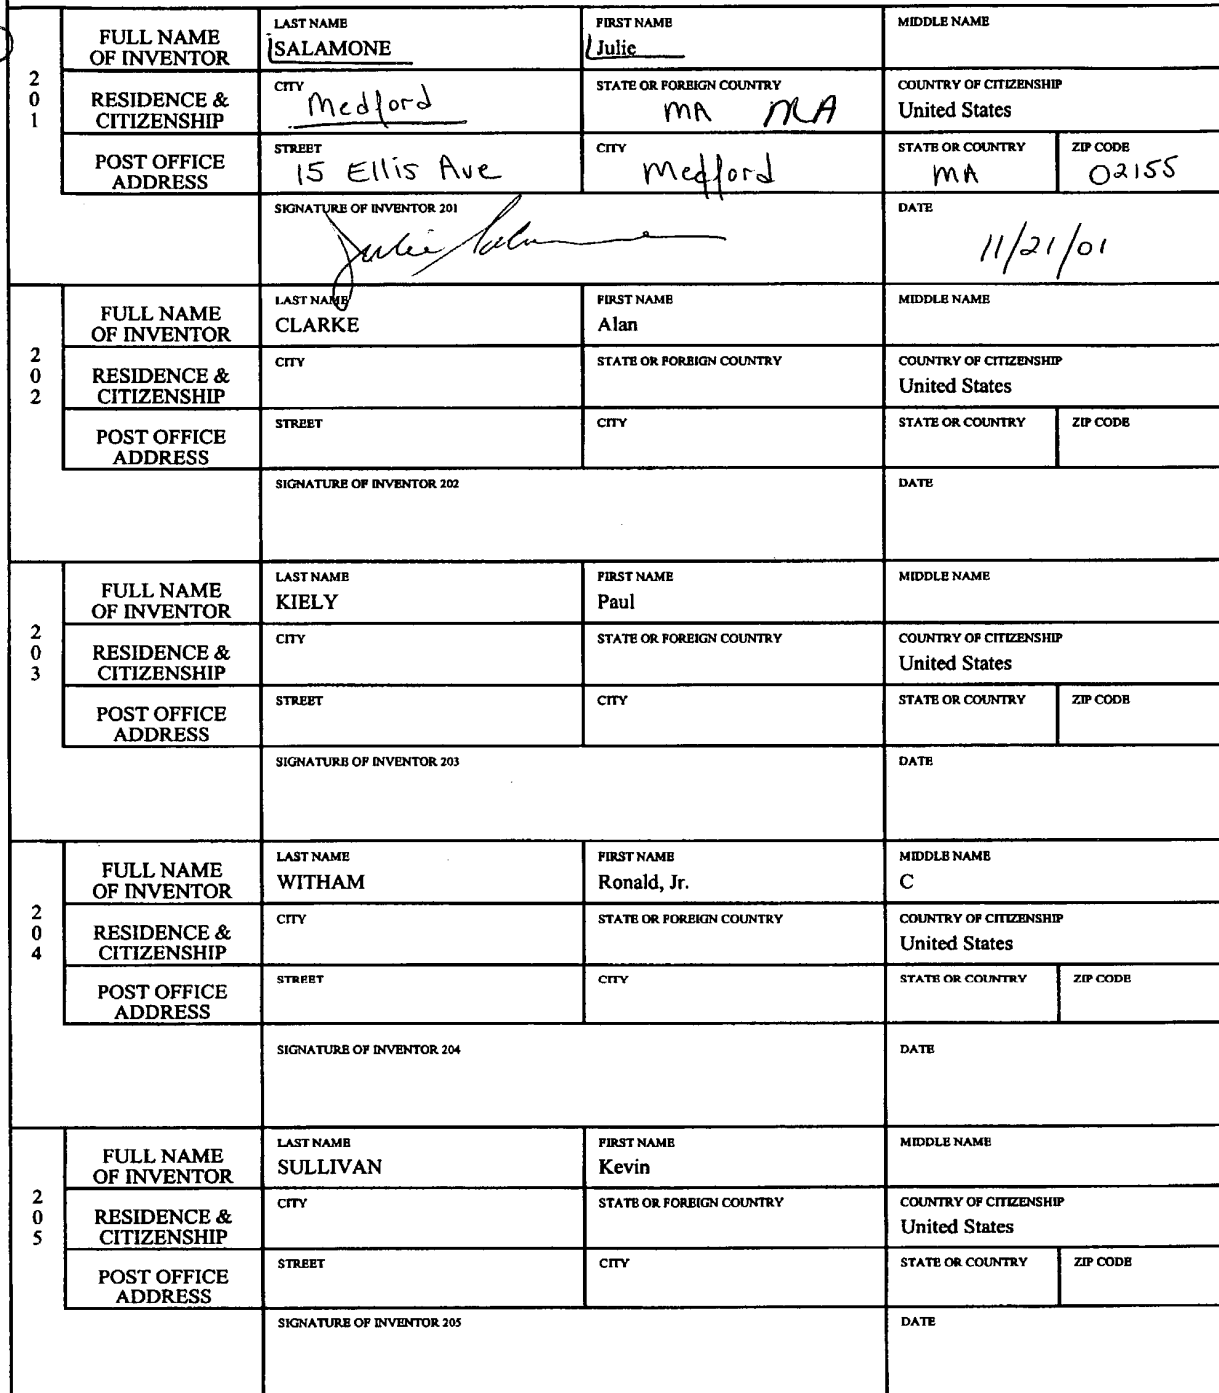 201
FULL NAME OF INVENTOR
LAST NAME
SALAMONE
FIRST NAME
Julie
MIDDLE NAME
RESIDENCE & CITIZENSHIP
CITY
Medford
STATE OR FOREIGN COUNTRY
MA MA
COUNTRY OF CITIZENSHIP
United States
POST OFFICE ADDRESS
STREET
15 Ellis Ave
CITY
Medford
STATE OR COUNTRY
MA
ZIP CODE
02155
SIGNATURE OF INVENTOR 201
DATE
11/21/01
202
FULL NAME OF INVENTOR
LAST NAME
CLARKE
FIRST NAME
Alan
MIDDLE NAME
RESIDENCE & CITIZENSHIP
CITY
STATE OR FOREIGN COUNTRY
COUNTRY OF CITIZENSHIP
United States
POST OFFICE ADDRESS
STREET
CITY
STATE OR COUNTRY
ZIP CODE
SIGNATURE OF INVENTOR 202
DATE
203
FULL NAME OF INVENTOR
LAST NAME
KIELY
FIRST NAME
Paul
MIDDLE NAME
RESIDENCE & CITIZENSHIP
CITY
STATE OR FOREIGN COUNTRY
COUNTRY OF CITIZENSHIP
United States
POST OFFICE ADDRESS
STREET
CITY
STATE OR COUNTRY
ZIP CODE
SIGNATURE OF INVENTOR 203
DATE
204
FULL NAME OF INVENTOR
LAST NAME
WITHAM
FIRST NAME
Ronald, Jr.
MIDDLE NAME
C
RESIDENCE & CITIZENSHIP
CITY
STATE OR FOREIGN COUNTRY
COUNTRY OF CITIZENSHIP
United States
POST OFFICE ADDRESS
STREET
CITY
STATE OR COUNTRY
ZIP CODE
SIGNATURE OF INVENTOR 204
DATE
205
FULL NAME OF INVENTOR
LAST NAME
SULLIVAN
FIRST NAME
Kevin
MIDDLE NAME
RESIDENCE & CITIZENSHIP
CITY
STATE OR FOREIGN COUNTRY
COUNTRY OF CITIZENSHIP
United States
POST OFFICE ADDRESS
STREET
CITY
STATE OR COUNTRY
ZIP CODE
SIGNATURE OF INVENTOR 205
DATE